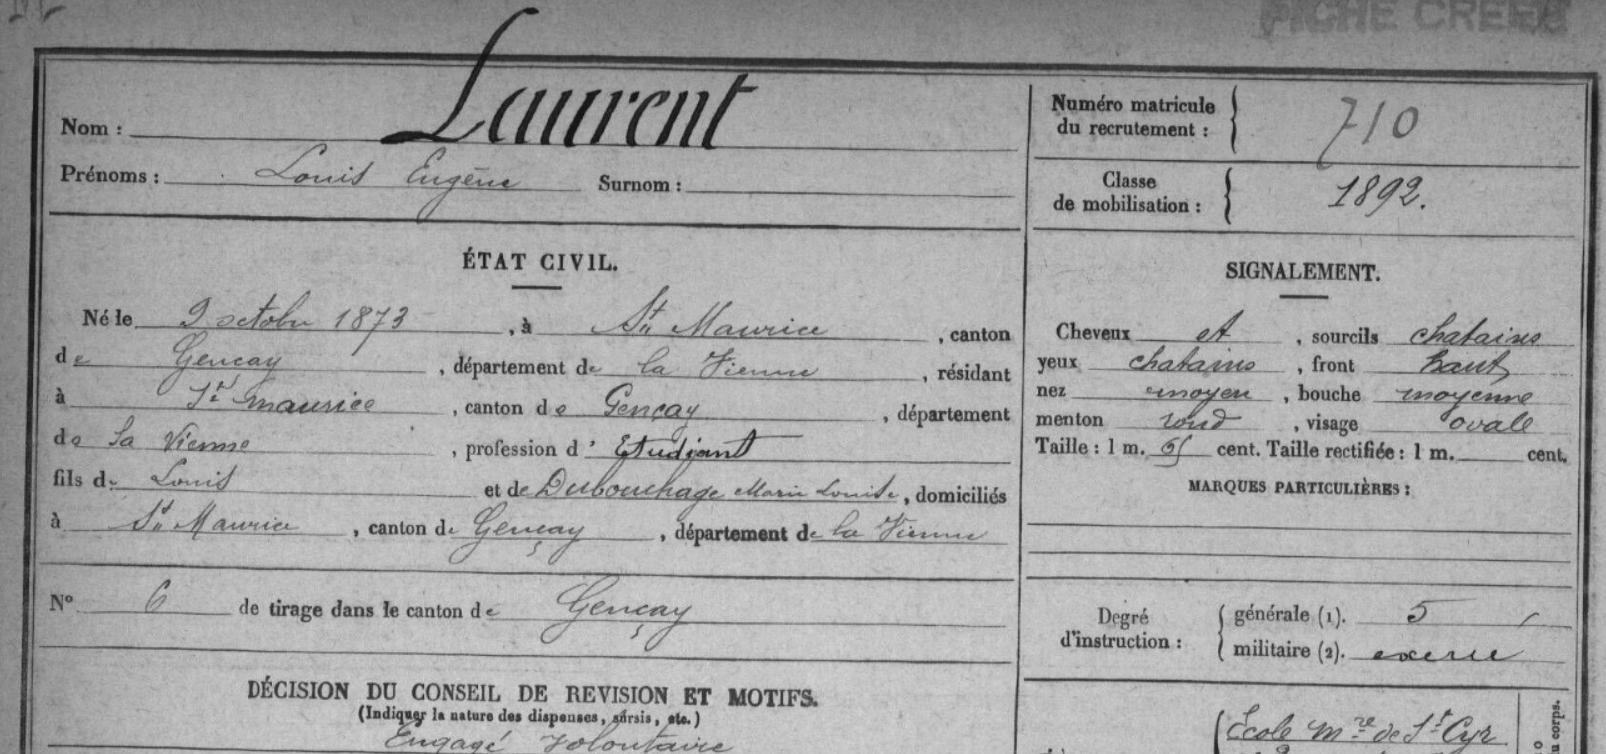 FICHE CRÉÉE
Nom : Laurent
Prénoms : Louis Eugène Surnom :
Numéro matricule
du recrutement : 710
Classe
de mobilisation : 1892.
ÉTAT CIVIL.
Né le 9 octobre 1873, à St Maurice, canton
de Gencay, département de la Vienne, résidant
à St maurice, canton de Gençay, département
de la Vienne, profession d' Etudiant
fils de Louis et de Dubouchage Marie Louise, domiciliés
à St Maurice, canton de Gençay, département de la Vienne
N° 6 de tirage dans le canton de Gençay
DÉCISION DU CONSEIL DE REVISION ET MOTIFS.
(Indiquer la nature des dispenses, sursis, etc.)
Engagé volontaire
SIGNALEMENT.
Cheveux et, sourcils chatains
yeux chatains, front haut
nez moyen, bouche moyenne
menton rond, visage ovale
Taille : 1 m. 65 cent. Taille rectifiée : 1 m. cent.
MARQUES PARTICULIÈRES :
Degré
d'instruction :
générale (1). 5
militaire (2). exercé
École Mre de St Cyr
u corps.